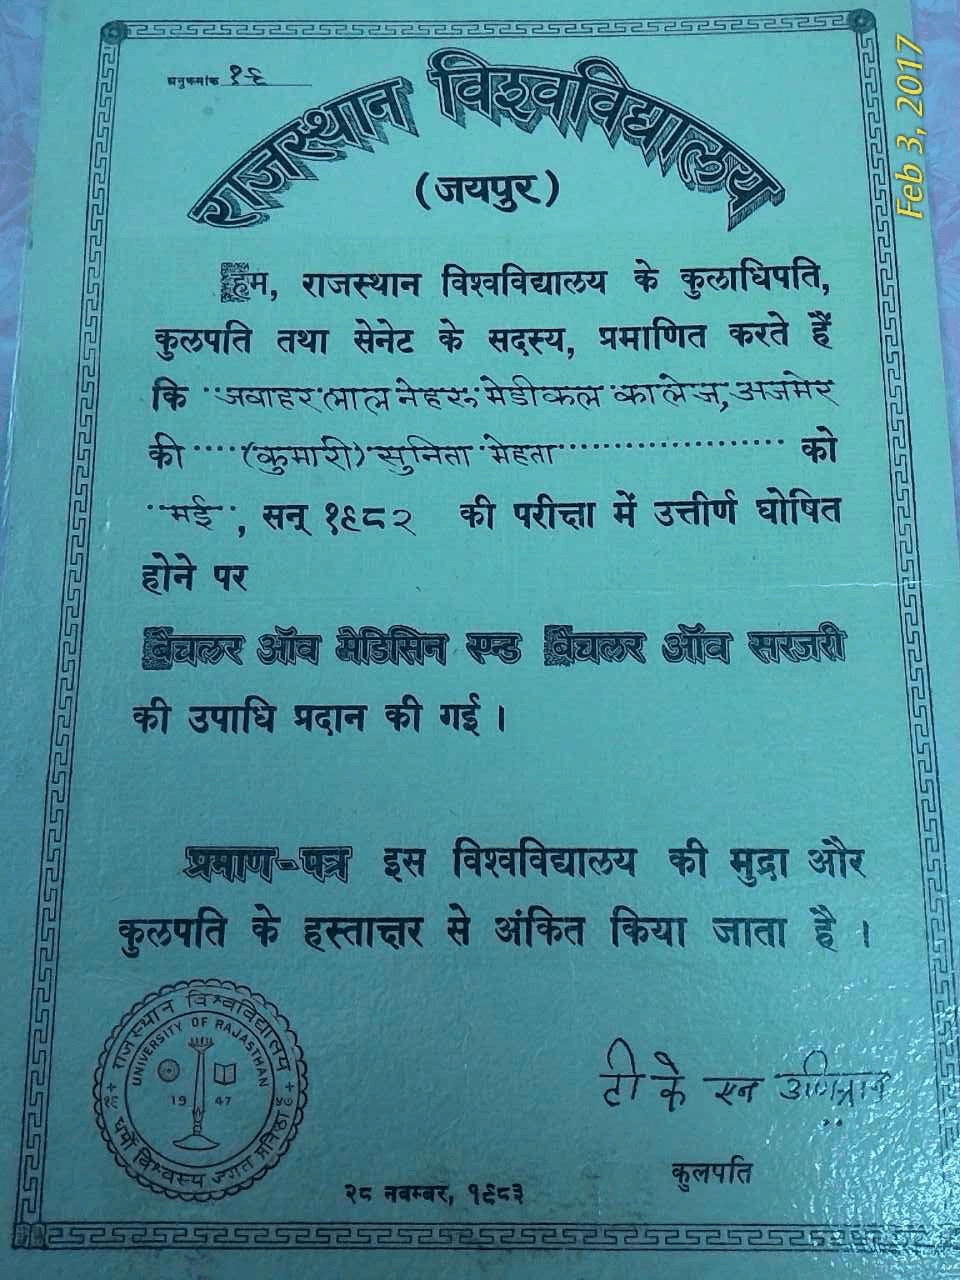 अनुक्रमांक १६
राजस्थान विश्वविद्यालय
(जयपुर)
हम, राजस्थान विश्वविद्यालय के कुलाधिपति,
कुलपति तथा सेनेट के सदस्य, प्रमाणित करते हैं
कि जवाहर लाल नेहरू मेडीकल कालेज, अजमेर
की (कुमारी) सुनिता मेहता को
मई, सन् १९८२ की परीक्षा में उत्तीर्ण घोषित
होने पर
बैचलर ऑव मेडिसिन एन्ड बैचलर ऑव सरजरी
की उपाधि प्रदान की गई ।
प्रमाण-पत्र इस विश्वविद्यालय की मुद्रा और
कुलपति के हस्ताक्षर से अंकित किया जाता है ।
राजस्थान विश्वविद्यालय
UNIVERSITY OF RAJASTHAN
1947
धर्मो विश्वस्य जगतः प्रतिष्ठा
टी के एन
कुलपति
२८ नवम्बर, १९८३
Feb 3, 2017